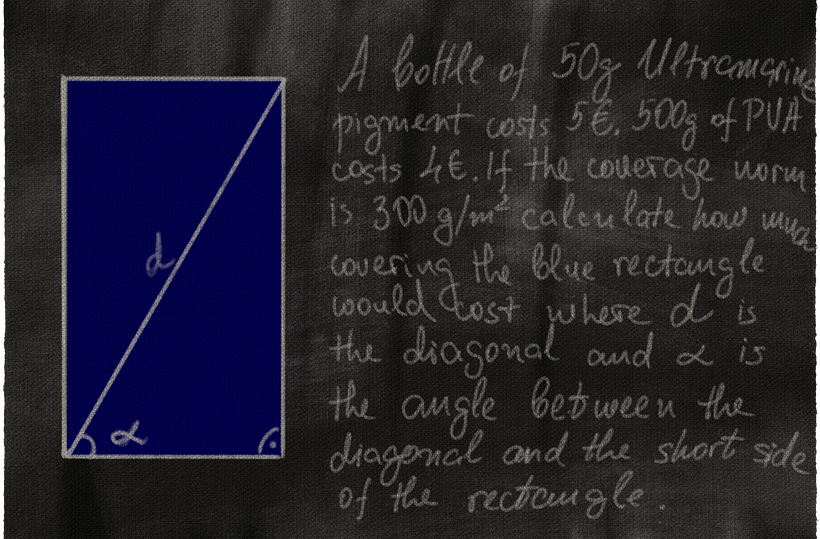 A bottle of 50g Ultramarine
pigment costs 5€. 500g of PVA
costs 4€. If the coverage norm
is 300 g/m² calculate how much
covering the blue rectangle
would cost where d is
the diagonal and α is
the angle between the
diagonal and the short side
of the rectangle.
d
α